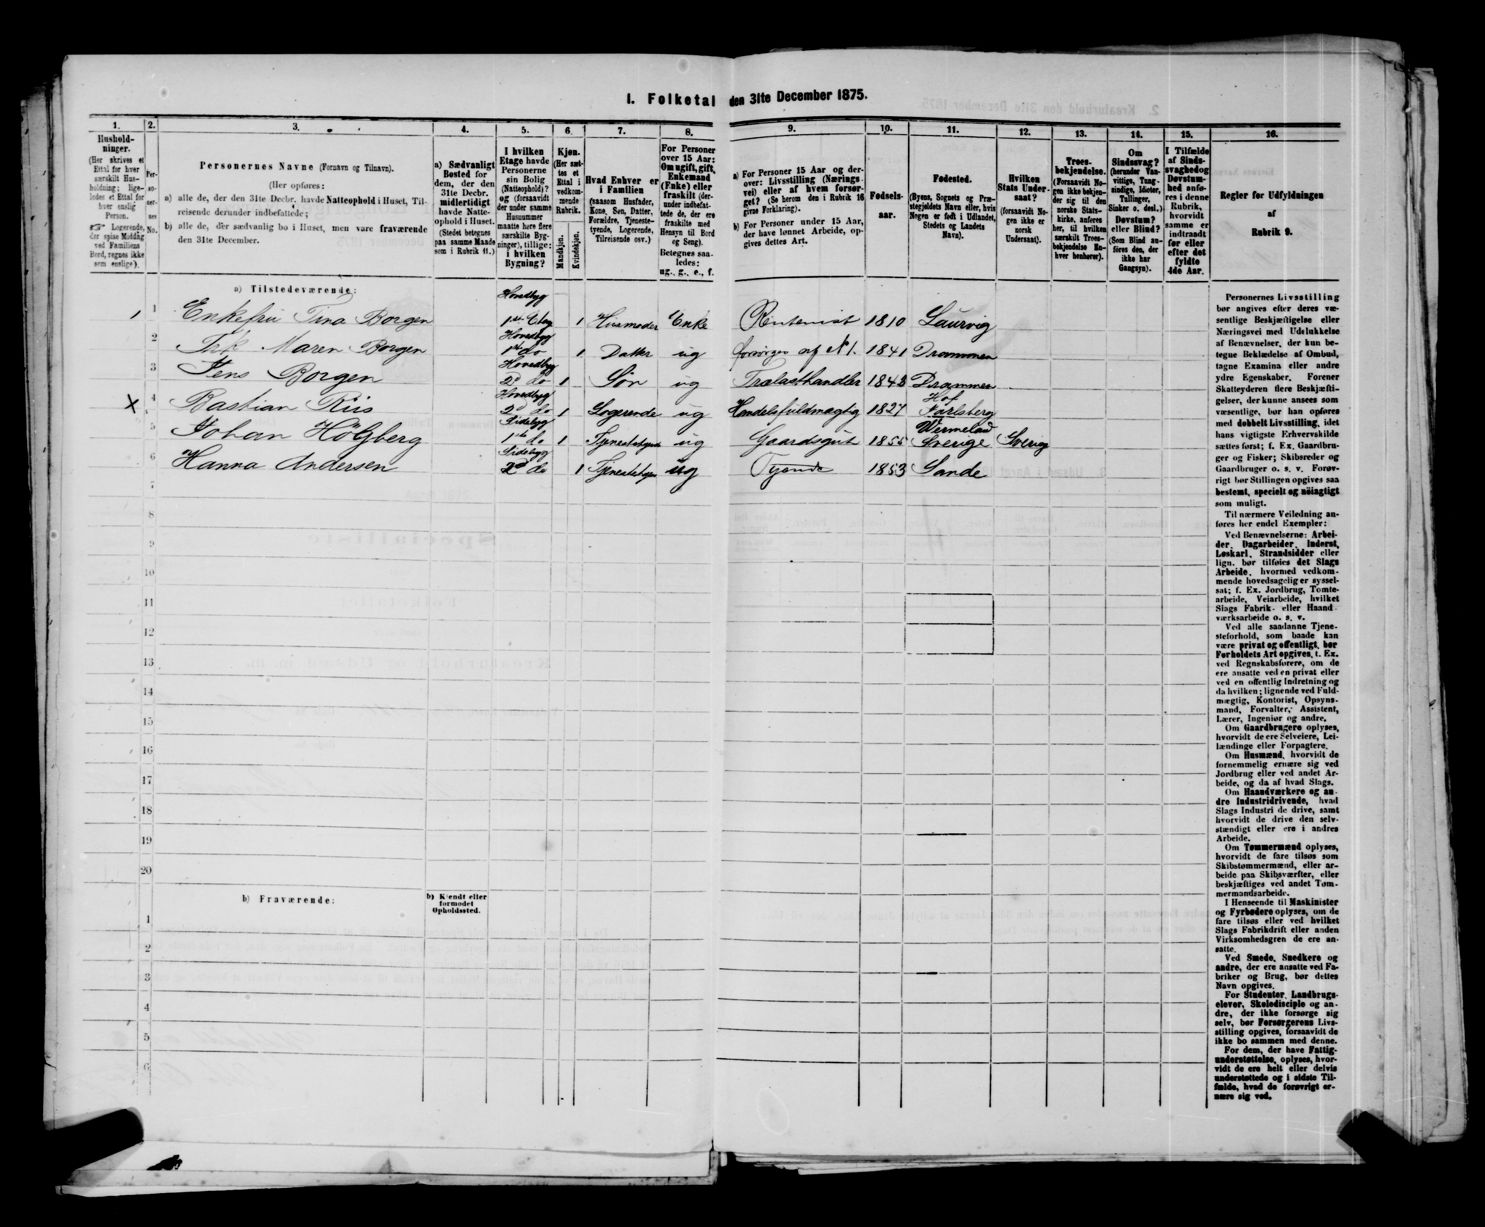 I. Folketal den 31te December 1875.
1. 2. 3. 4. 5. 6. 7. 8. 9. 10. 11. 12. 13. 14. 15. 16.
Hushold-
ninger.
(Her skrives et
Ettal for hver
særskilt Hus-
holdning; lige-
ledes et Ettal for
hver enslig
Person.
☞ Logerende,
der spise Middag
ved Familiens
Bord, regnes ikke
som enslige).
Per-
so-
ner-
nes
No.
Personernes Navne (Fornavn og Tilnavn).
(Her opføres:
a) alle de, der den 31te Decbr. havde Natteophold i Huset, Til-
reisende derunder indbefattede;
b) alle de, der sædvanlig bo i Huset, men vare fraværende
den 31te December.
a) Sædvanligt
Bosted for
dem, der den
31te Decbr.
midlertidigt
havde Natte-
ophold i Huset.
(Stedet betegnes
paa samme Maade
som i Rubrik 11.)
I hvilken
Etage havde
Personerne
sin Bolig
(Natteophold)?
og (forsaavidt
der under samme
Husnummer
maatte høre flere
særskilte Byg-
ninger), tillige:
i hvilken
Bygning?
Kjøn.
(Her sæt-
tes et
Ettal i
vedkom-
mende
Rubrik.
Mandkjøn.
Kvindekjøn.
Hvad Enhver er
i Familien
(saasom Husfader,
Kone, Søn, Datter,
Forældre, Tjeneste-
tyende, Logerende,
Tilreisende osv.)
For Personer
over 15 Aar:
Om ugift, gift,
Enkemand
(Enke) eller
fraskilt (der-
under indbefat-
tede de, der ere
fraskilte med
Hensyn til Bord
og Seng).
Betegnes saa-
ledes:
ug., g., e., f.
a) For Personer 15 Aar og der-
over: Livsstilling (Nærings-
vei) eller af hvem forsør-
get? (Se herom den i Rubrik 16
givne Forklaring).
b) For Personer under 15 Aar,
der have lønnet Arbeide, op-
gives dettes Art.
Fødsels-
aar.
Fødested.
(Byens, Sognets og Præ-
stegjældets Navn eller, hvis
Nogen er født i Udlandet,
Stedets og Landets
Navn).
Hvilken
Stats Under-
saat?
(forsaavidt No-
gen ikke er
norsk
Undersaat).
Troes-
bekjendelse.
(Forsaavidt No-
gen ikke bekjen-
der sig til den
norske Stats-
kirke, anføres
her, til hvilken
særskilt Troes-
bekjendelse En-
hver henhører).
Om
Sindssvag?
(herunder Van-
vittige, Tung-
sindige, Idioter,
Tullinger,
Sinker o. desl.).
Døvstum?
eller Blind?
(Som Blind an-
føres den, der
ikke har
Gangsyn).
I Tilfælde
af Sinds-
svaghed og
Døvstum-
hed anfø-
res i denne
Rubrik,
hvorvidt
samme er
indtraadt
før eller
efter det
fyldte
4de Aar.
Regler for Udfyldningen
af
Rubrik 9.
a) Tilstedeværende:
1 1 Enkefru Tina Borgen Hovedbyg 1st Etag 1 Husmoder Enke Rentenist 1810 Laurvig
2 Frk Maren Borgen Hovedbyg 1ste do 1 Datter ug forsørges af № 1. 1841 Drammen
3 Jens Borgen Hovedbyg 2d do 1 Søn ug Trælasthandler 1843 Drammen
X 4 Bastian Riis Hovedbyg 2d do 1 Logerende ug Handelsfuldmægtig 1827 Hof Jarlsberg
5 Johan Högberg Sidebyg 1ste do 1 Tjenestetyende ug Gaardsgut 1855 Wermeland Sverige Sverig
6 Hanna Andersen Sidebyg 2d do 1 Tjenestetyen ug Tyende 1853 Sande
7
8
9
10
11
12
13
14
15
16
17
18
19
20
b) Fraværende:
b) Kjendt eller
formodet
Opholdssted.
1
2
3
4
5
6
Personernes Livsstilling
bør angives efter deres væ-
sentlige Beskjæftigelse eller
Næringsvei med Udelukkelse
af Benævnelser, der kun be-
tegne Beklædelse af Ombud,
tagne Examina eller andre
ydre Egenskaber. Forener
Skatteyderen flere Beskjæfti-
gelser, der kunne ansees som
væsentlige, bør han opføres
med dobbelt Livsstilling, idet
hans vigtigste Erhvervskilde
sættes først; f. Ex. Gaardbru-
ger og Fisker; Skibsreder og
Gaardbruger o. s. v. Forøv-
rigt bør Stillingen opgives saa
bestemt, specielt og nøiagtigt
som muligt.
Til nærmere Veiledning an-
føres her endel Exempler:
Ved Benævnelserne: Arbei-
der, Dagarbeider, Inderst,
Løskarl, Strandsidder eller
lign. bør tilføies det Slags
Arbeide, hvormed vedkom-
mende hovedsagelig er syssel-
sat; f. Ex. Jordbrug, Tomte-
arbeide, Veiarbeide, hvilket
Slags Fabrik- eller Haand-
værksarbeide o. s. v.
Ved alle saadanne Tjene-
steforhold, som baade kan
være privat og offentligt, bør
Forholdets Art opgives, t. Ex.
ved Regnskabsførere, om de
ere ansatte ved en privat eller
ved en offentlig Indretning og
da hvilken; lignende ved Fuld-
mægtig, Kontorist, Opsyns-
mand, Forvalter, Assistent,
Lærer, Ingeniør og andre.
Om Gaardbrugere oplyses,
hvorvidt de ere Selveiere, Lei-
lændinge eller Forpagtere.
Om Husmænd, hvorvidt de
fornemmelig ernære sig ved
Jordbrug eller ved andet Ar-
beide, og da af hvad Slags.
Om Haandværkere og an-
dre Industridrivende, hvad
Slags Industri de drive, samt
hvorvidt de drive den selv-
stændigt eller ere i andres
Arbeide.
Om Tømmermænd oplyses,
hvorvidt de fare tilsøs som
Skibstømmermænd, eller ar-
beide paa Skibsværfter, eller
beskjæftiges ved andet Tøm-
mermandsarbeide.
I Henseende til Maskinister
og Fyrbødere oplyses, om de
fare tilsøs eller ved hvilket
Slags Fabrikdrift eller anden
Virksomhedsgren de ere an-
satte.
Ved Smede, Snedkere og
andre, der ere ansatte ved Fa-
briker og Brug, bør dettes
Navn opgives.
For Studenter, Landbrugs-
elever, Skoledisciple og an-
dre, der ikke forsørge sig
selv, bør Forsørgerens Livs-
stilling opgives, forsaavidt de
ikke bo sammen med denne.
For dem, der have Fattig-
understøttelse, oplyses, hvor-
vidt de ere helt eller delvis
understøttede og i sidste Til-
fælde, hvad de forøvrigt er-
nære sig ved.